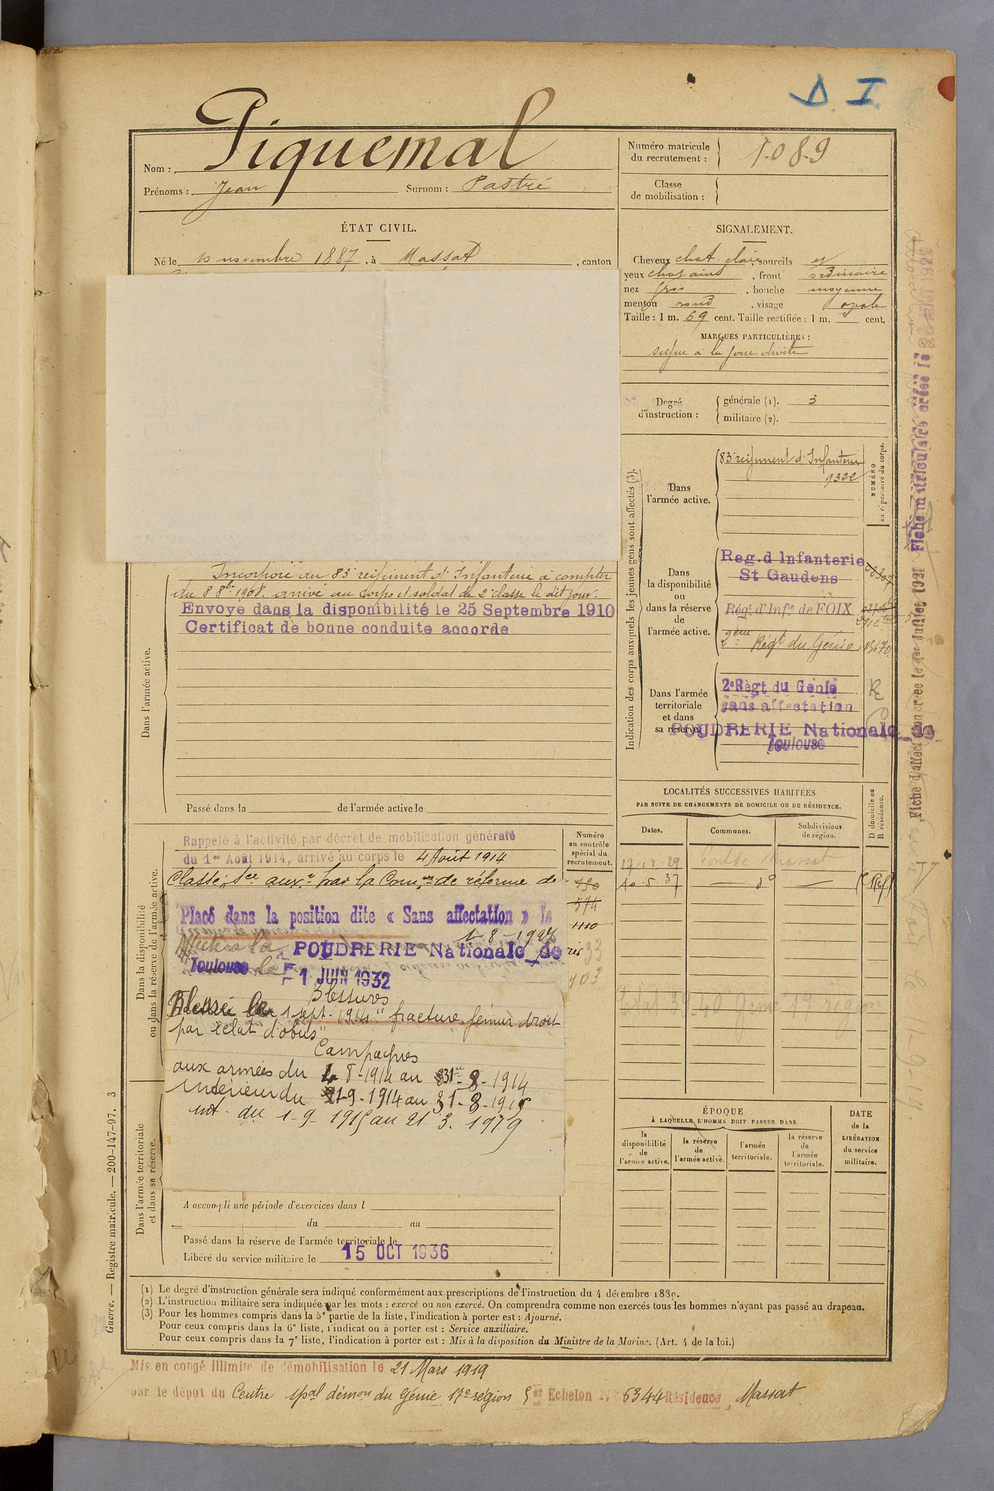 D. I.
Piquemal
Nom :
Prénoms : Jean Surnom : Pastré
Numéro matricule du recrutement : 1089
Classe de mobilisation :
ÉTAT CIVIL.
Né le 10 novembre 1887, à Massat, canton
SIGNALEMENT.
Cheveux chat. clair sourcils et
yeux chatains, front ordinaire
nez gros, bouche moyenne
menton rond, visage ovale
Taille : 1 m. 69 cent. Taille rectifiée : 1 m. cent.
MARQUES PARTICULIÈRES :
à la joue droite
Degré d'instruction :
générale (1). 3
militaire (2).
Indication des corps auxquels les jeunes gens sont affectés (3).
Dans l'armée active.
83e régiment d'Infanterie
NUMÉRO au répertoire du corps.
Dans la disponibilité ou dans la réserve de l'armée active.
Reg. d Infanterie
St Gaudens
Régt d'Infie de FOIX
2e Régt du Génie
Dans l'armée territoriale et dans sa réserve.
2e Règt du Genie
sans affectation
POUDRERIE Nationale de
Toulouse
Dans l'armée active.
Incorporé au 83e régiment d'Infanterie à compter
du 8 8bre 1908. arrivé au corps et soldat de 2e classe le dit jour.
Envoye dans la disponibilité le 25 Septembre 1910
Certificat de bonne conduite accorde
Passé dans la de l'armée active le
LOCALITÉS SUCCESSIVES HABITÉES
PAR SUITE DE CHANGEMENTS DE DOMICILE OU DE RÉSIDENCE.
Dates. Communes. Subdivisions de région. D domicile ou R résidence.
10.5.37 — do — (Ref)
Dans la disponibilité ou dans la réserve de l'armée active.
Numéro au contrôle spécial du recrutement.
Rappelé à l'activité par décret de mobilisation générale
du 1er Aout 1914, arrivé au corps le 4 Août 1914
Classé sce auxre par la Comon de réforme de
Placé dans la position dite « Sans affectation » le
1-8-1927
Affecté à la POUDRERIE Nationale de
Toulouse le 1 JUIN 1932
Blessures
Blessé le 1 sept. 1914 "fracture fémur droit
par éclat d'obus"
Campagnes
aux armées du 4-8-1914 au 31-8-1914
Intérieur du 1-9-1914 au 31-8-1915
int. du 1-9-1915 au 21.3.1919
Dans l'armée territoriale et dans sa réserve.
A accompli une période d'exercices dans l
du au
Passé dans la réserve de l'armée territoriale le
Libéré du service militaire le 15 OCT 1936
ÉPOQUE
À LAQUELLE L'HOMME DOIT PASSER DANS
la disponibilité de l'armée active.
la réserve de l'armée active.
l'armée territoriale.
la réserve de l'armée territoriale.
DATE de la LIBÉRATION du service militaire.
(1) Le degré d'instruction générale sera indiqué conformément aux prescriptions de l'instruction du 4 décembre 1889.
(2) L'instruction militaire sera indiquée par les mots : exercé ou non exercé. On comprendra comme non exercés tous les hommes n'ayant pas passé au drapeau.
(3) Pour les hommes compris dans la 5e partie de la liste, l'indication à porter est : Ajourné.
Pour ceux compris dans la 6e liste, l'indication à porter est : Service auxiliaire.
Pour ceux compris dans la 7e liste, l'indication à porter est : Mis à la disposition du Ministre de la Marine. (Art. 4 de la loi.)
Guerre. — Registre matricule. — 200-147-97. 3
Mis en congé illimité de démobilisation le 21 Mars 1919
par le dépot du Centre spal démon du Génie 17e région 5e Echelon N° 6344 Résidence Massat